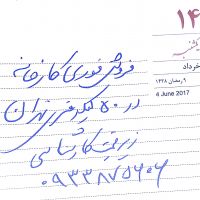 ۱۴
یکشنبه
خرداد
۹ رمضان ۱۴۳۸
4 June 2017
فروش فوری کارخانه
در ۵۰ کیلومتری تهران
زیر قیمت کارشناسی
۰۹۳۳۸۷۵۶۰۶